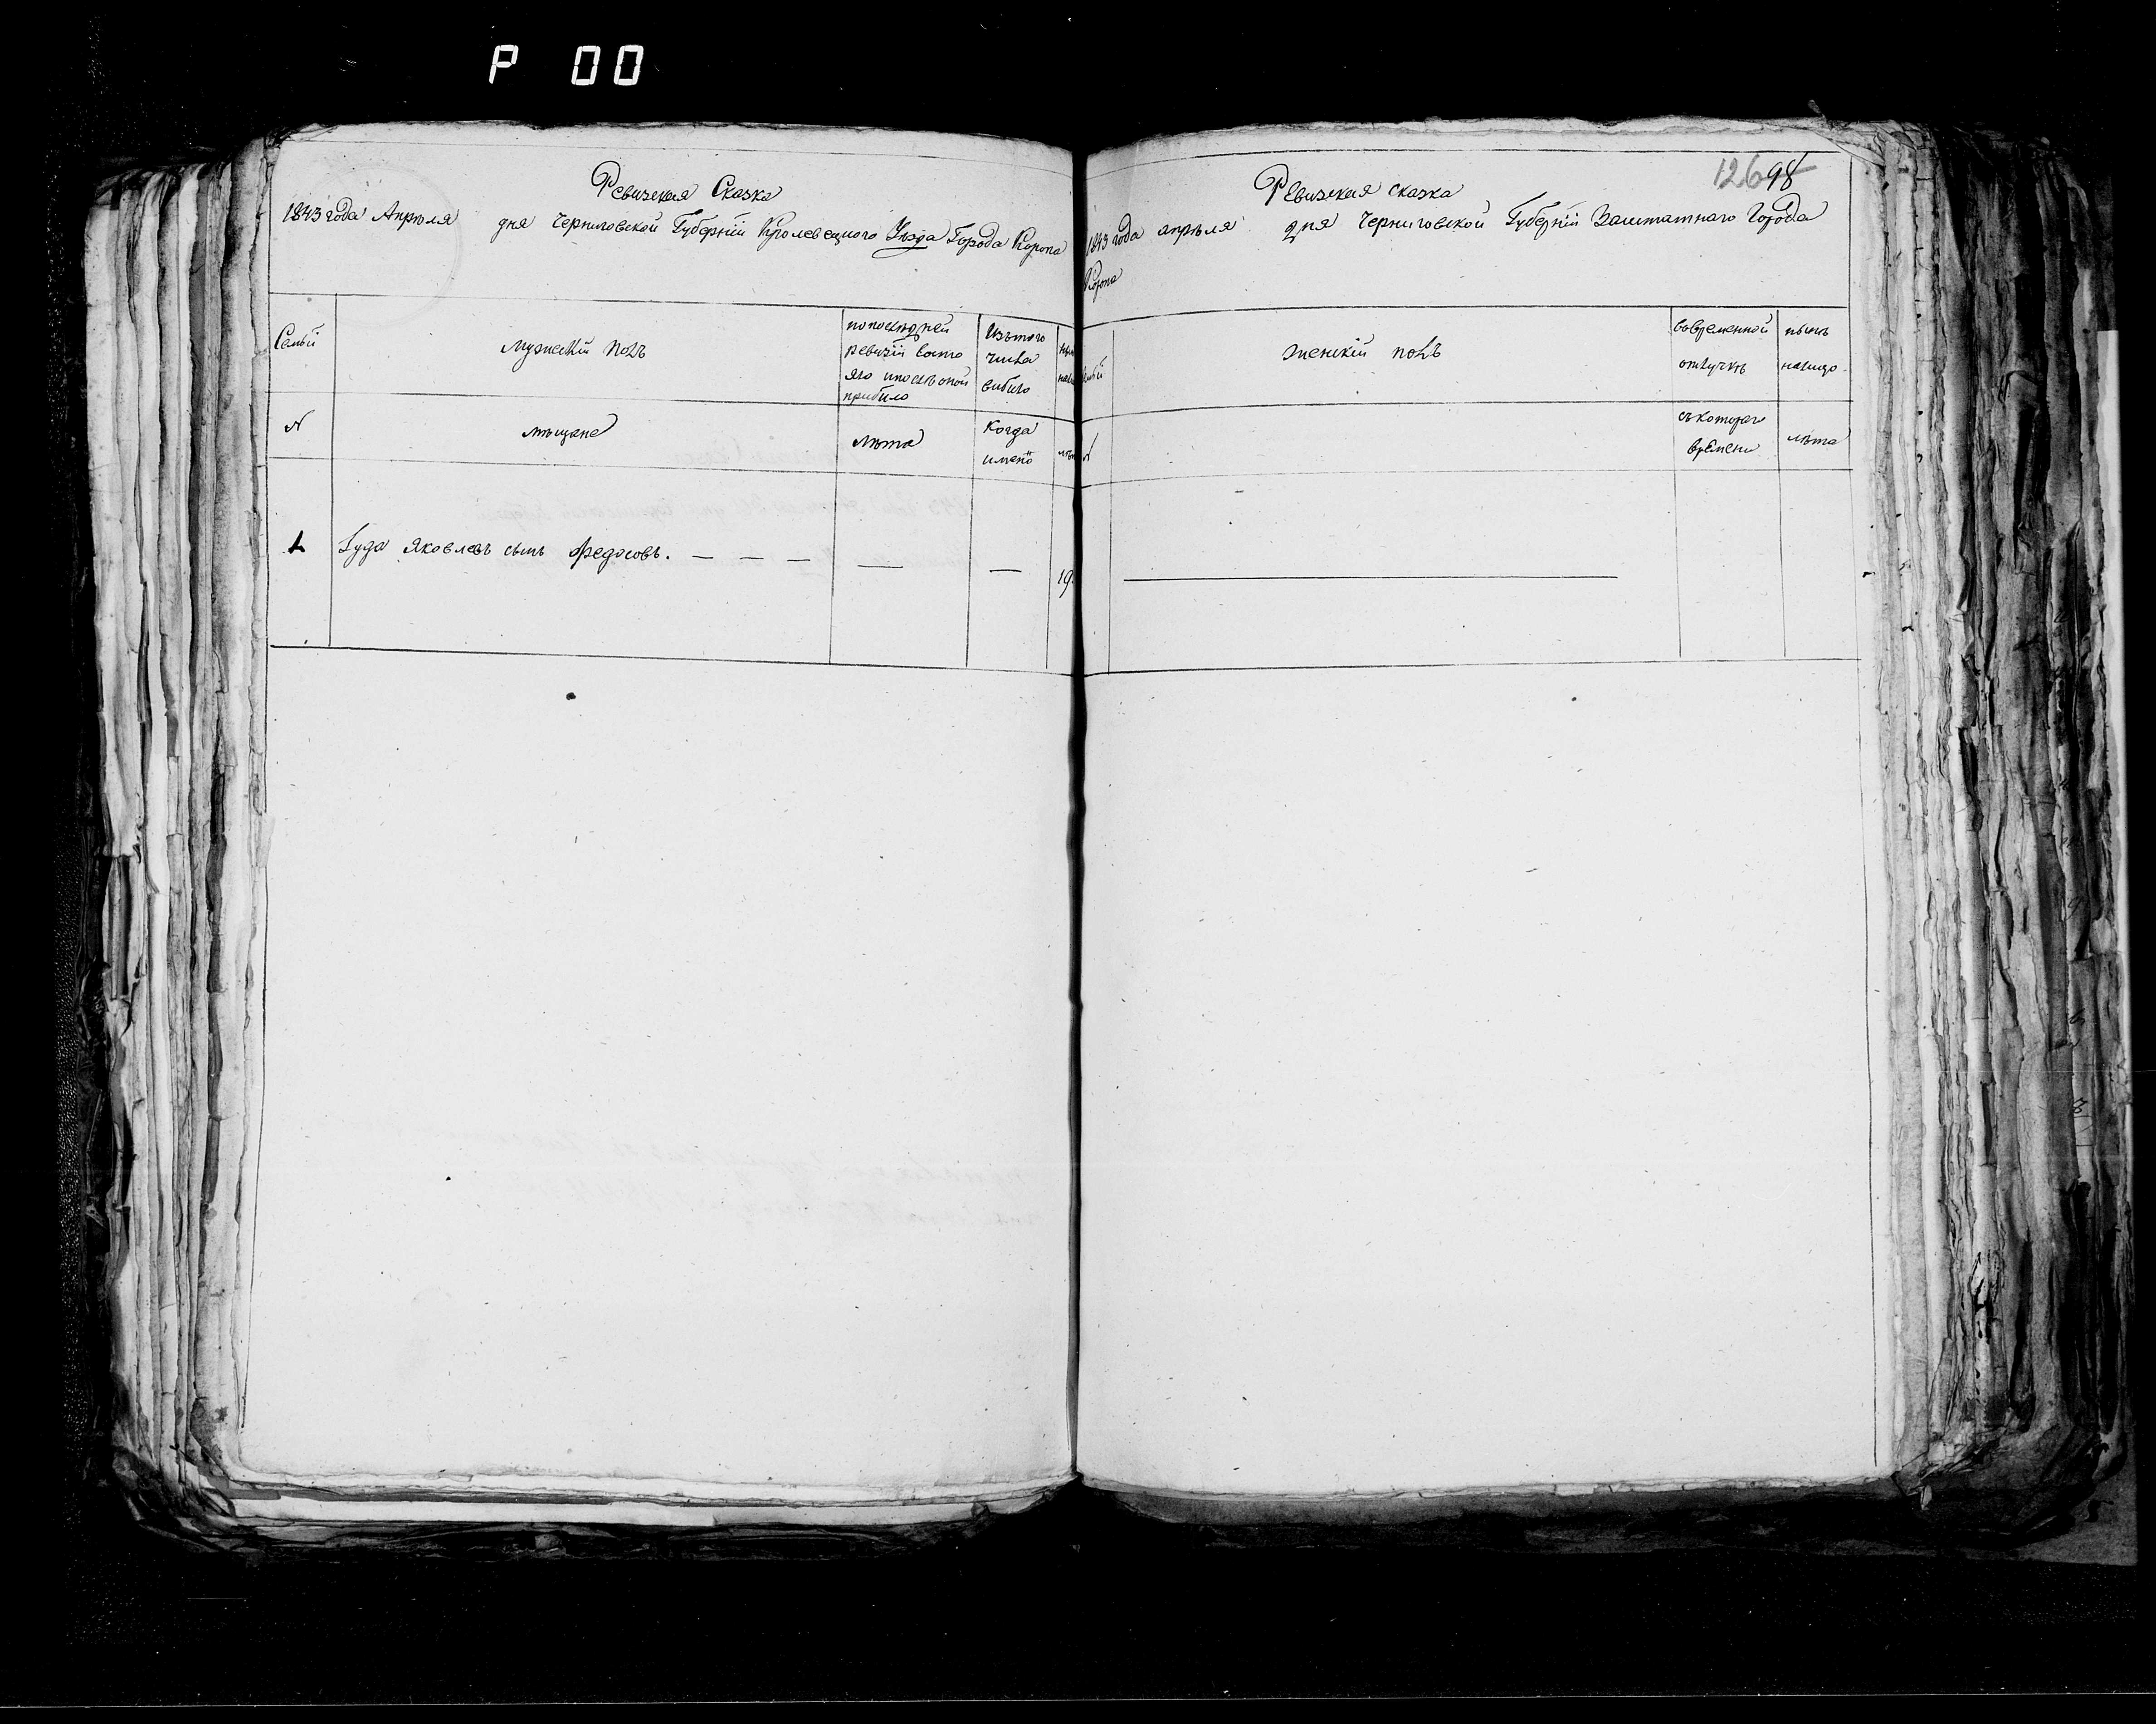 P 00
Ревизская Сказка
1843 года Апреля дня Черниговской Губерніи Кролевецкого Уезда Города Коропа
Семьи
Мужескій полъ
по последней
ревизіи состо
яло и после оной
прибыло
Изъ того
числа
выбыло
№
мещане
лета
Когда
имено
1 Іуда Яковлевъ сынъ Федосовъ. — — — — — 19.
12698
Ревизская сказка
1843 года апреля дня Черниговской Губерніи Заштатнаго Города
Коропа
Женскій полъ
во временной
отлучке
ныне
налицо
№
съ котораго
времени
лета